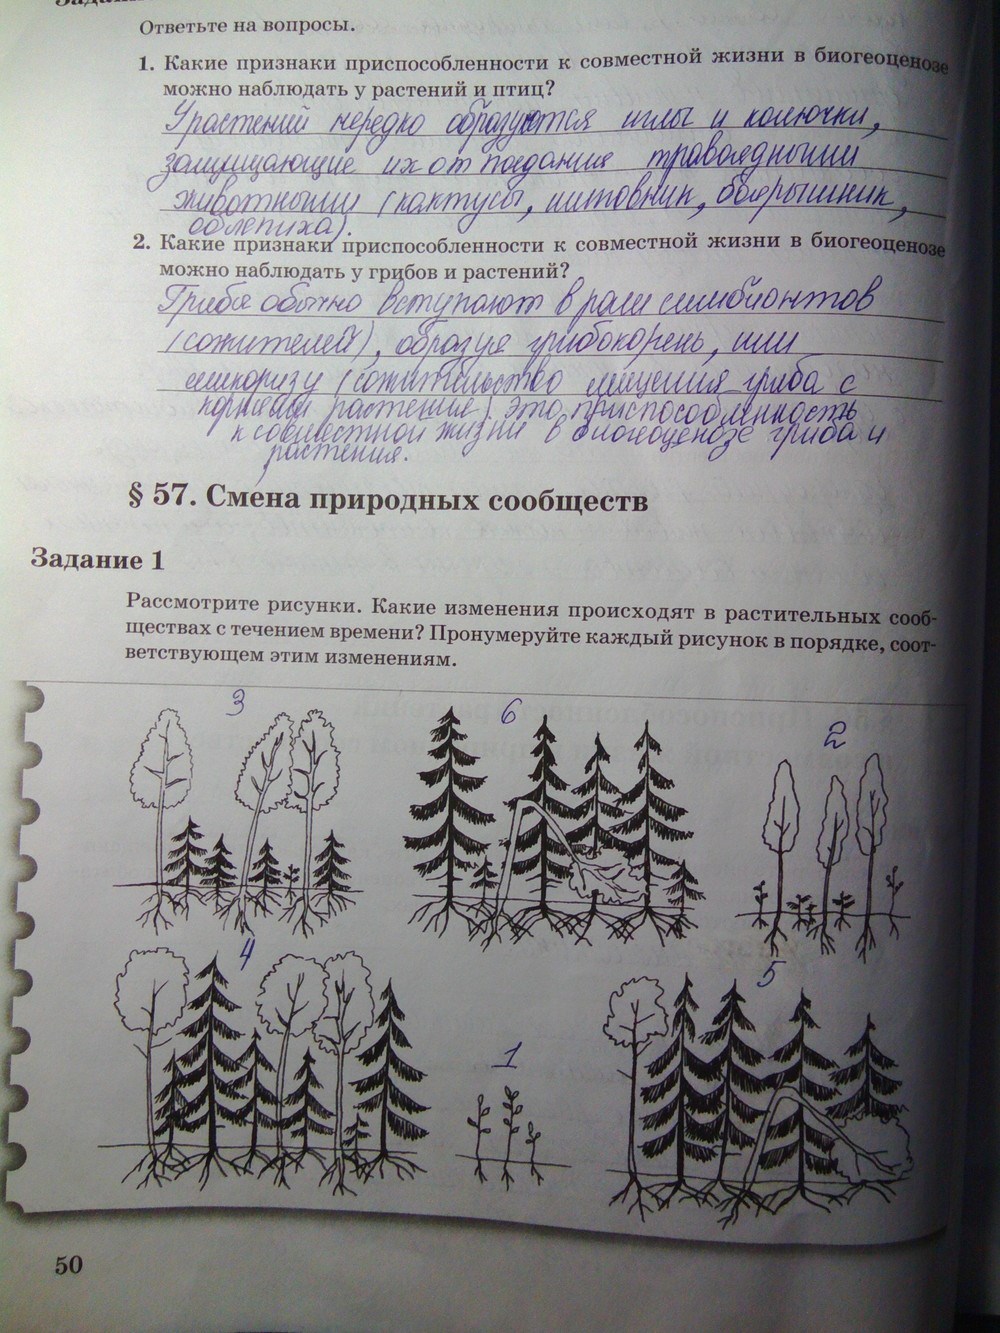 Ответьте на вопросы.
1. Какие признаки приспособленности к совместной жизни в биогеоценозе
можно наблюдать у растений и птиц?
У растений нередко образуются иглы и колючки,
защищающие их от поедания травоядными
животными (кактусы, шиповник, боярышник,
облепиха).
2. Какие признаки приспособленности к совместной жизни в биогеоценозе
можно наблюдать у грибов и растений?
Грибы обычно вступают в роли симбионтов
(сожителей), образуя грибокорень, или
микоризу (сожительство мицелия гриба с
корнями растения). Это приспособленность
к совместной жизни в биогеоценозе гриба и
растения.
§ 57. Смена природных сообществ
Задание 1
Рассмотрите рисунки. Какие изменения происходят в растительных сооб-
ществах с течением времени? Пронумеруйте каждый рисунок в порядке, соот-
ветствующем этим изменениям.
3 6 2
4 1 5
50